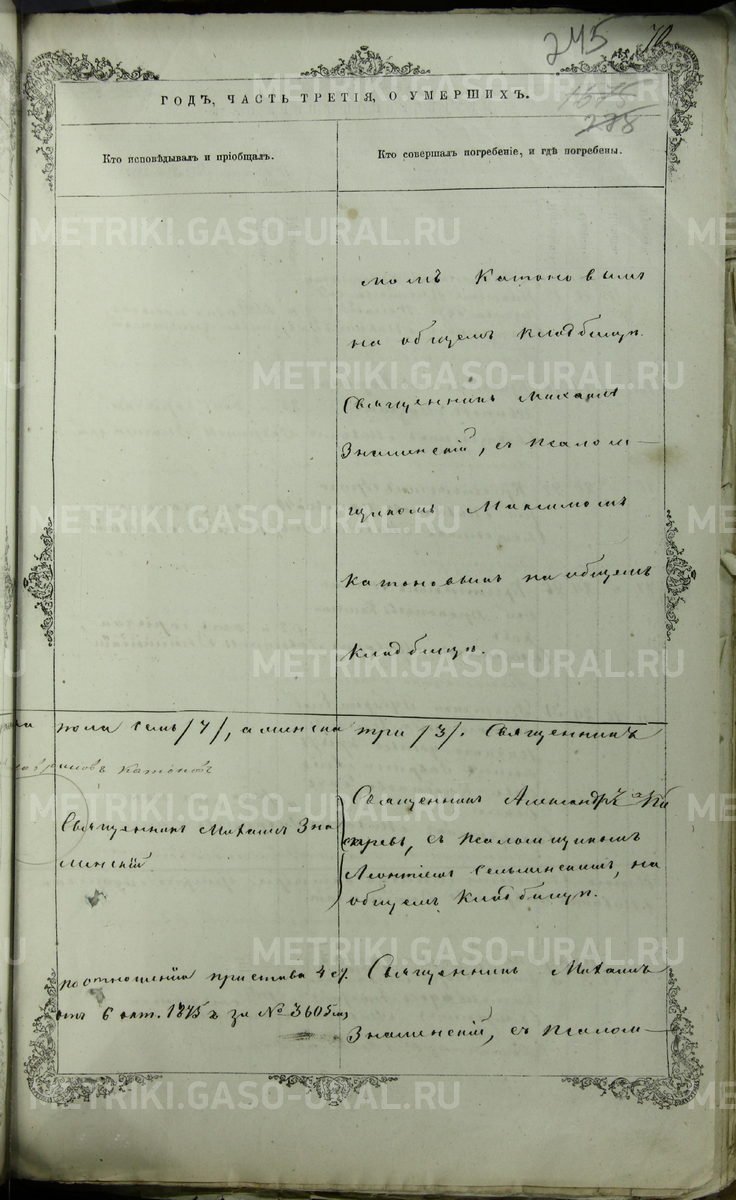 245
70
1575
278
ГОДЪ, ЧАСТЬ ТРЕТІЯ, О УМЕРШИХЪ.
Кто исповѣдывалъ и пріобщалъ.
Кто совершалъ погребеніе, и гдѣ погребены.
момъ Катоновымъ
на общемъ кладбищѣ.
Священникъ Михаилъ
Знаменскій, съ псалом—
щикомъ Максимомъ
Катоновымъ на общемъ
кладбищѣ.
пола семь /7/, а женска три /3/. Священникъ
Катоновъ
Священникъ Михаилъ Зна
менскій
Священникъ Александръ
съ псаломщикомъ
Леонтіемъ на
общемъ кладбищѣ.
по отношенію пристава 4 ст.
отъ 6 окт. 1875 г. за № 3605
Священникъ Михаилъ
Знаменскій, съ псалом—
METRIKI.GASO-URAL.RU